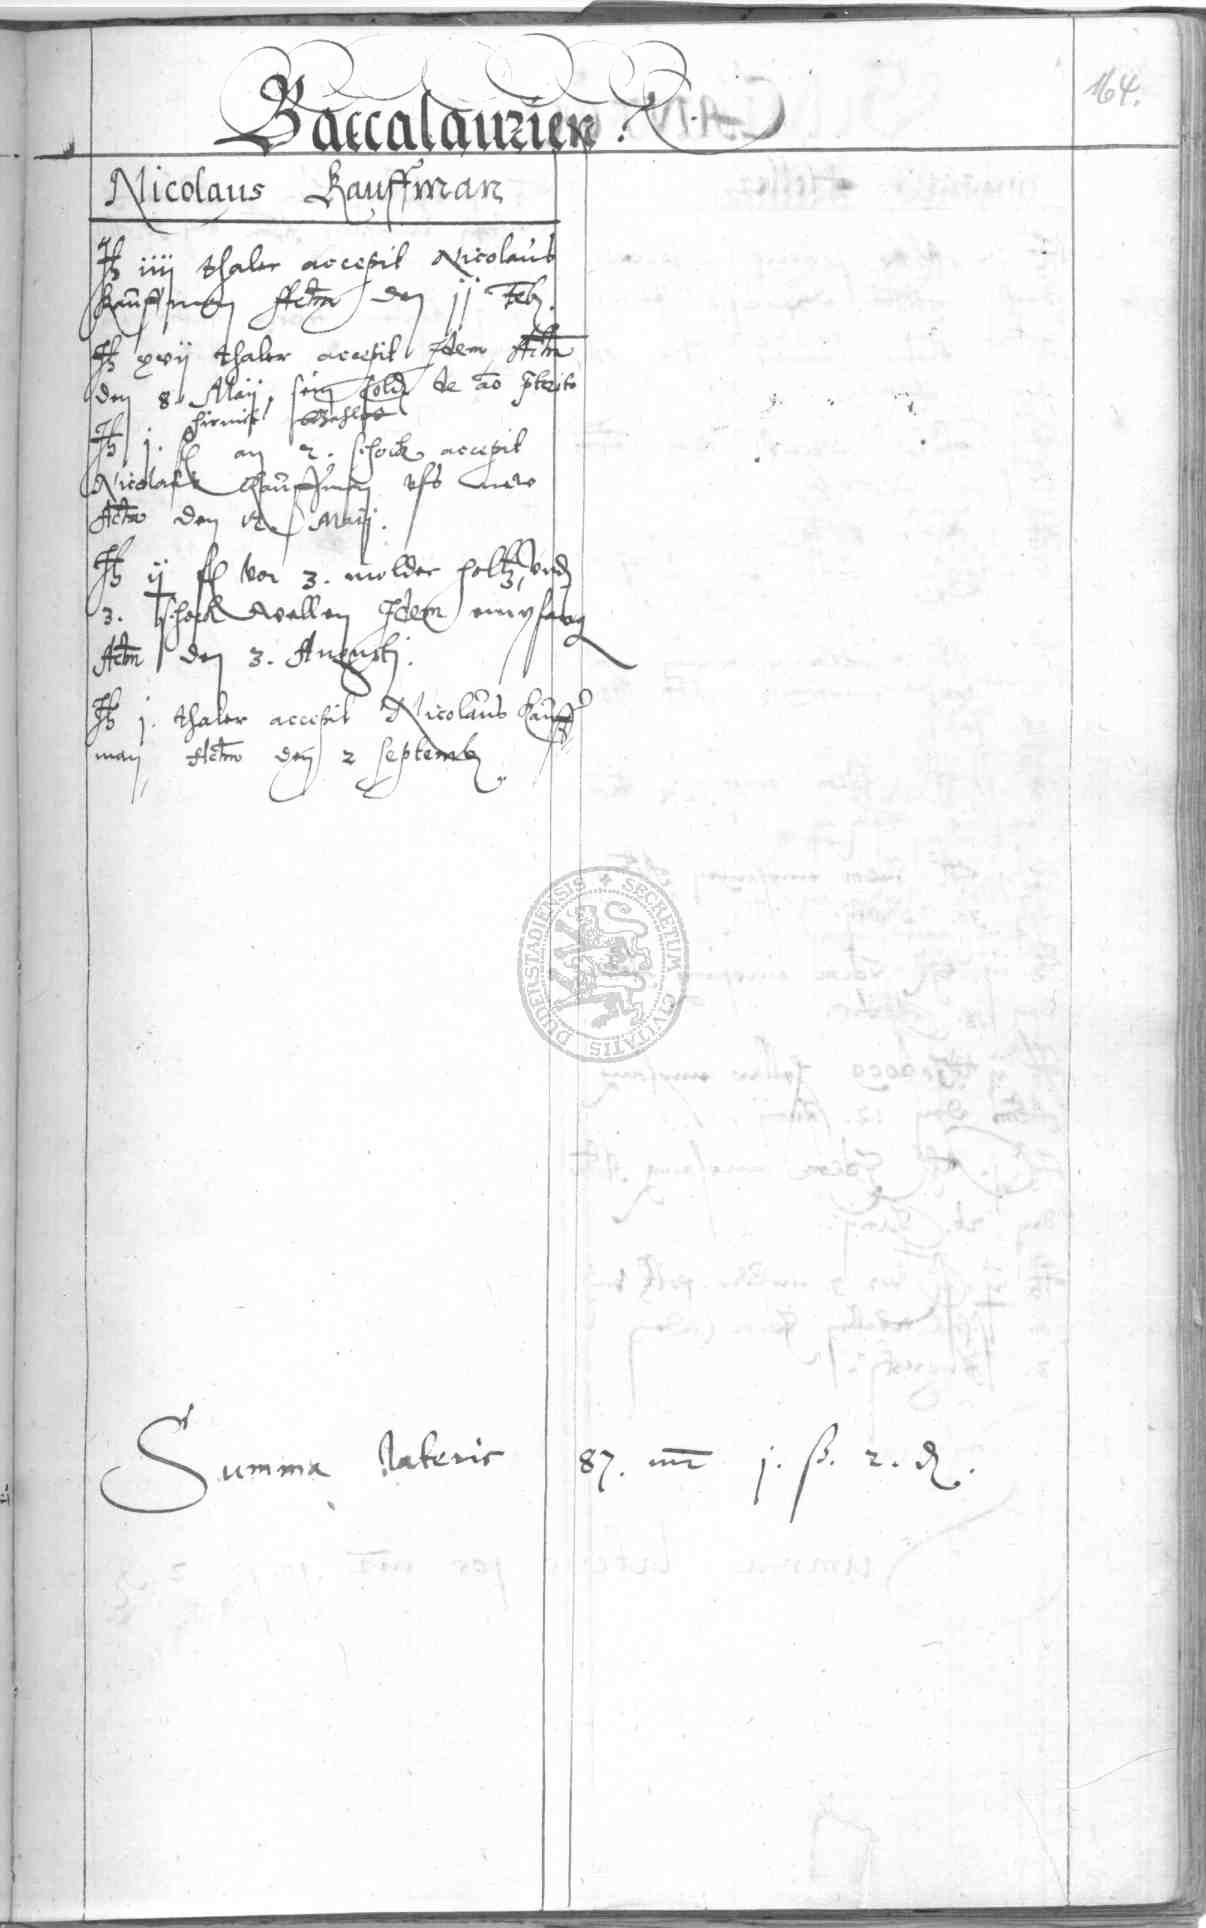 164.
Baccalaurien.
Nicolaus Kauffman
iiij thaler accepit Nicolaus
Kauffman Actm den jj Feb.
xvij thaler accepit Idem Actm
den 8 Maij, sein solt de ao pterito
hirmit bezahlet
j. an 2. schock accepit
Nicolaus Kauffman
Actm den Maij.
ij fl vor 3. molder holtz, undt
3. schock wellen Idem empfang
Actm den 3. Augusti.
j. thaler accepit Nicolaus Kauff
man Actm den 2 Septemb.
SECRETUM CIVITATIS DUDERSTADIENSIS
Summa lateris 87. mr j. ß. 2. d.